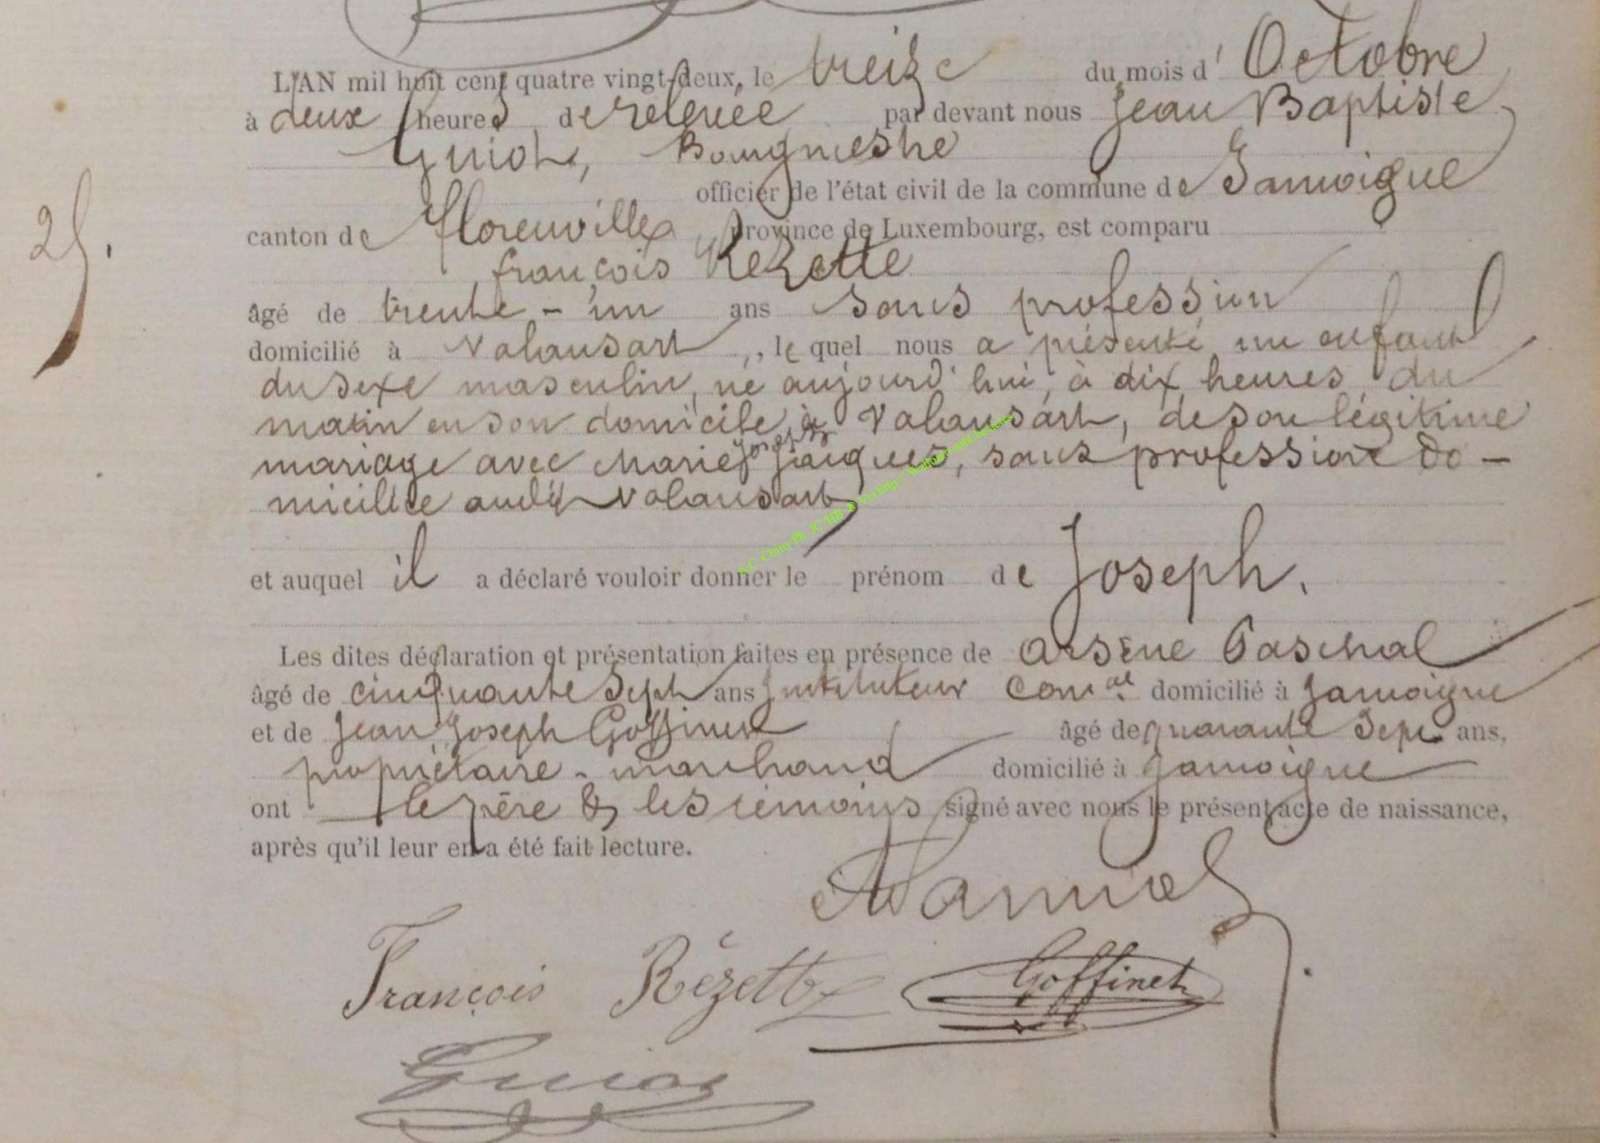 L'AN mil huit cent quatre vingt-deux, le treize du mois d'Octobre
à deux heures de relevée par devant nous Jean Baptiste
Guiot, Bourgmestre
officier de l'état civil de la commune de Jamoigne
canton de Florenville province de Luxembourg, est comparu
françois Rezette
âgé de trente-un ans sans profession
domicilié à Valansart, lequel nous a présenté un enfant
du sexe masculin, né aujourd'hui, à dix heures du
matin en son domicile à Valansart, de son légitime
mariage avec Marie Joseph Jacques, sans profession do-
miciliée audit Valansart
et auquel il a déclaré vouloir donner le prénom de Joseph.
Les dites déclaration et présentation faites en présence de Arsène Paschal
âgé de cinquante sept ans Instituteur Comal domicilié à Jamoigne
et de Jean Joseph Goffinet âgé de quarante sept ans,
propriétaire-marchand domicilié à Jamoigne
ont le père & les témoins signé avec nous le présent acte de naissance,
après qu'il leur en a été fait lecture.
François Rézette Goffinet
Guiot
25.